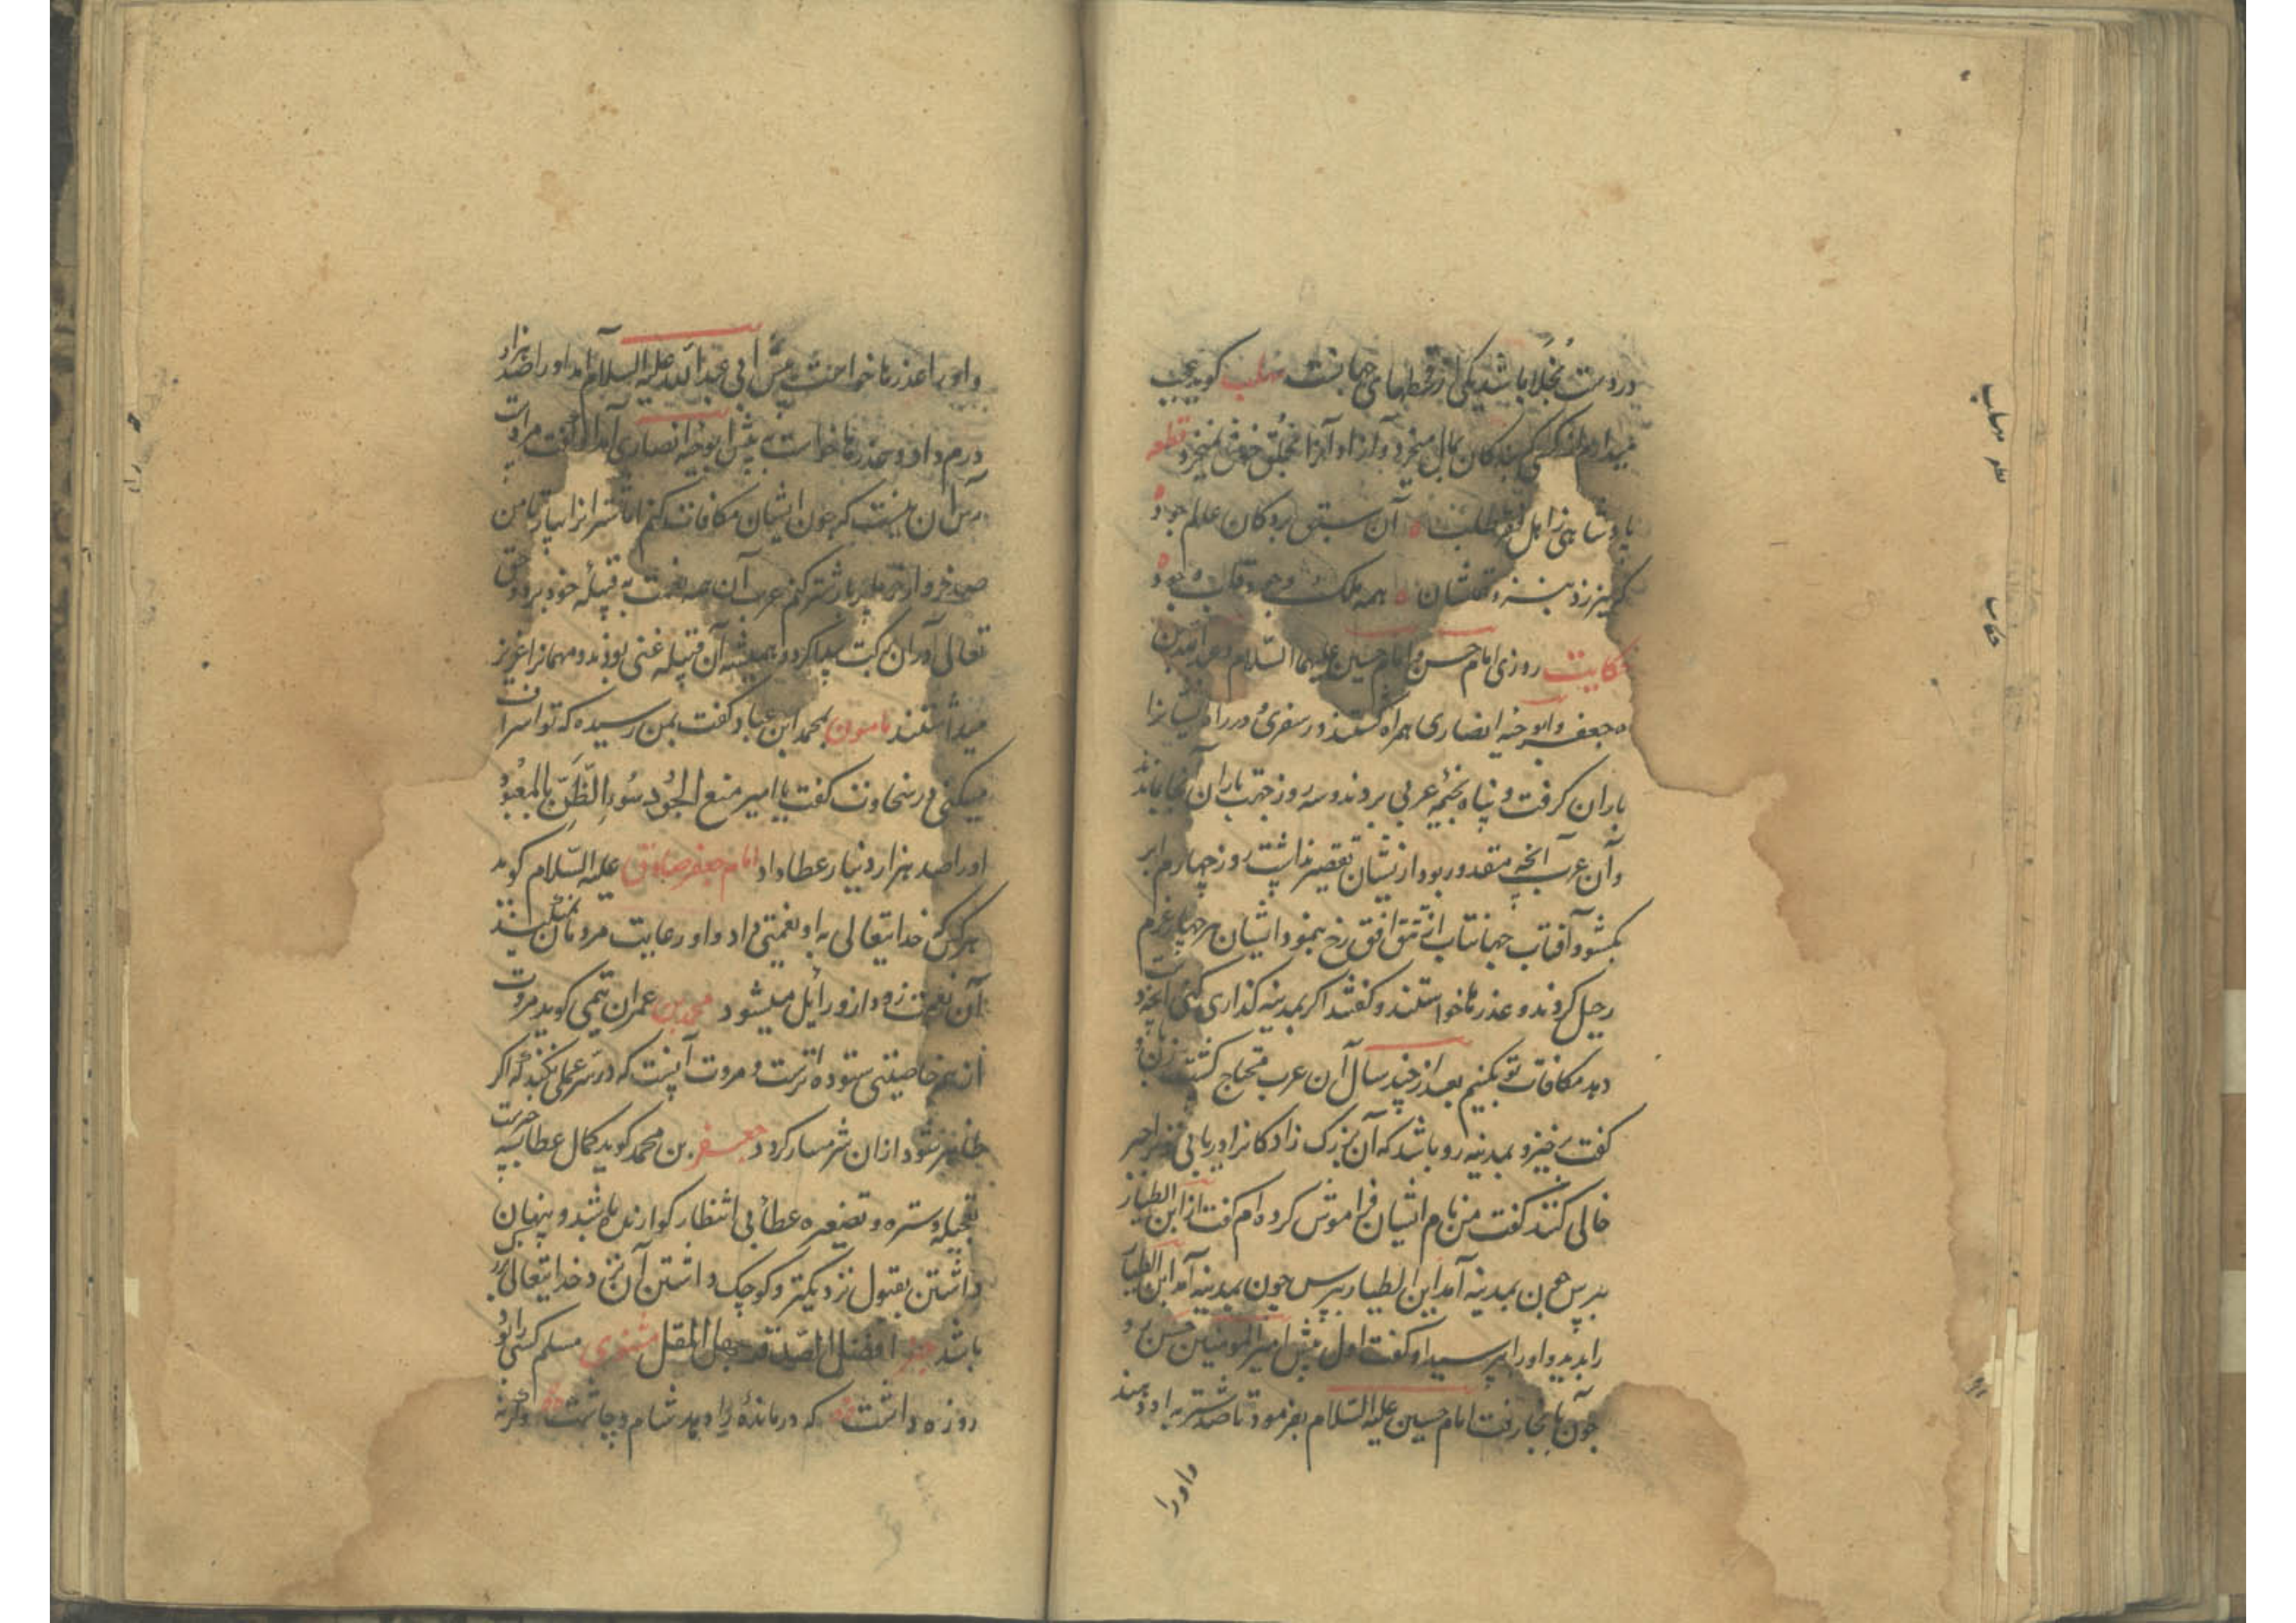 در دست بخلا باشد یکی از قحطهای جهانست مهلب کوید عجب
میدارم از کسی که بندکان بمال میخرد و آزاد آنرا بخلق خوش نمیخرد قطعه
پادشاهی ز اهل فقر طلب آن سبق بردکان عالم جود
که نیرزد بنزد همتشان همه ملک وجود قاب وجود
حکایت روزی امام حسن و امام حسین علیهما السلام و عبدالله بن
جعفر و ابوحیه انصاری همراه کشتند در سفری و در راه ایشانرا
باران کرفت و پناه بخیمه عربی بردند و سه روز جهت باران آنجا بماندند
و آن عرب آنچه مقدور بود از یشان تقصیر نداشت روز چهارم ابر
بکشود و آفتاب جهانتاب از تتق افق رخ بنمود ایشان هر چهار عزم
رحیل کردند و عذرها خواستند و کفتند اکر بمدینه کذاری کنی آنچه دست
دهد مکافات تو بکنیم بعد از چند سال آن عرب محتاج کشت زن او
کفت برخیز و بمدینه رو باشد که آن بزرک زادکانرا دریابی
خالی کنند کفت من نام ایشان فراموش کرده ام کفت از ابن الطیار
بپرس چون بمدینه آمد ابن الطیار بپرس چون بمدینه آمد ابن الطیار
را بدید و اورا پرسید او کفت اول پیش امیرالمومنین حسن رو
چون بآنجا رفت امام حسین علیه السلام بفرمود تا صد شتر به او دهند
و اورا
و اورا عذرها خواست پیش ابی عبدالله علیه السلام آمد اورا صد هزار
درم داد و عذرها خواست پیش ابوحیه انصاری آمد او کفت مرا دست
رس آن نیست که چون ایشان مکافات کنم اما شترانرا بیار تا من
صد خروار خرما بربار شتر کنم عرب آن همه نعمت به قبیله خود برد و حق
تعالی در آن برکت پیدا کرد و همیشه آن قبیله غنی بودند و مهمانرا عزیز
میداشتند مامون بمحمد ابن عباد کفت بمن رسیده که تو اسراف
میکنی در سخاوت کفت یا امیر منع الجود سوء الظن بالمعبود
اورا صد هزار دینار عطا داد امام جعفر صادق علیه السلام کوید
هر کس که خدایتعالی به او نعمتی داد و او رعایت مردمان
آن نعمت زود از و زایل میشود محمد بن عمران تیمی کوید مروت
از هم خاصیتی ستوده ترست و مروت آنست که در سر عملی نکند که اکر
ظاهر شود از ان شرمسار کردد جعفر بن محمد کوید کمال عطا بسه چیزست
تعجیله و ستره و تصغیره عطا بی انتظار کوارنده باشد و پنهان
داشتن بقبول نزدیکتر و کوچک داشتن آن نزد خدایتعالی بزرک
باشد خبر افضل الصدقة جهد المقل مثنوی مسلم کسی را بود
روزه داشت که درمانده را دهد شام و چاشت وکر نه